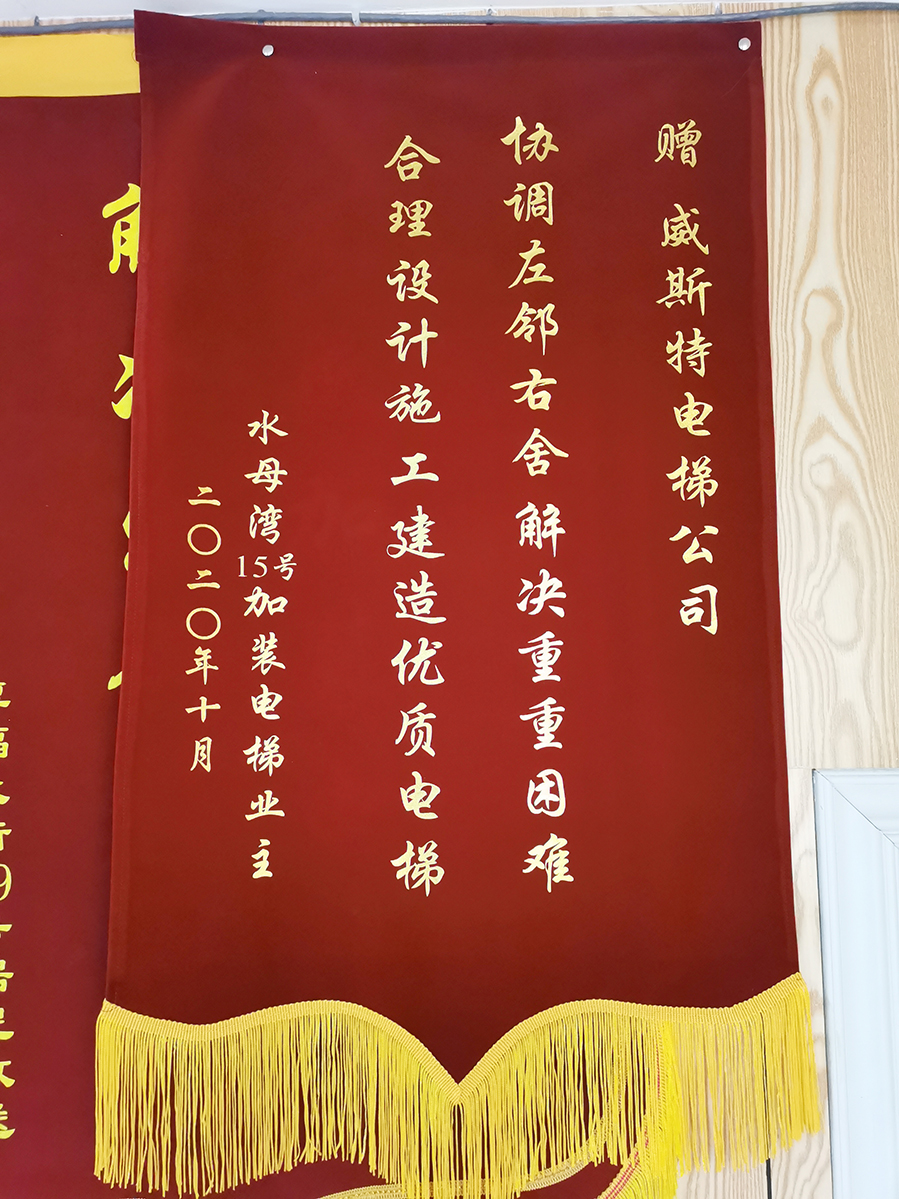 赠 威斯特电梯公司
协调左邻右舍解决重重困难
合理设计施工建造优质电梯
水母湾15号加装电梯业主
二〇二〇年十月